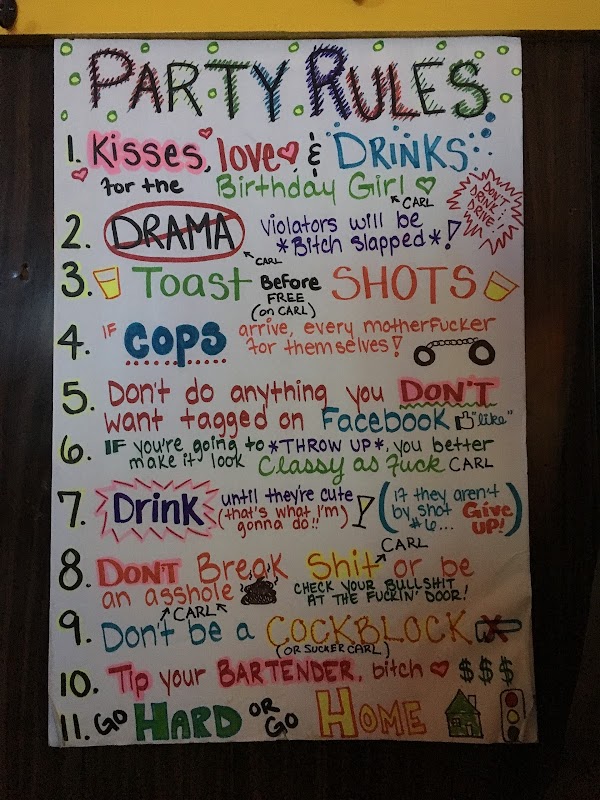 PARTY RULES
1. Kisses, love & DRINKS
for the Birthday Girl
CARL
DON'T
DRINK &
DRIVE!
2. DRAMA Violators will be
*Bitch slapped*!
CARL
3. Toast Before SHOTS
FREE
(on CARL)
4. IF COPS arrive, every motherfucker
for themselves!
5. Don't do anything you DON'T
want tagged on Facebook "like"
6. IF you're going to *THROW UP*, you better
make it look Classy as Fuck CARL
7. Drink until they're cute
(that's what I'm
gonna do!!)
(if they aren't
by shot
#6... Give
UP!)
CARL
8. DON'T Break Shit or be
an asshole CHECK YOUR BULLSHIT
AT THE FUCKIN' DOOR!
CARL
9. Don't be a COCKBLOCK
(OR SUCKER CARL)
10. Tip your BARTENDER, bitch $$$
11. GO HARD OR GO HOME